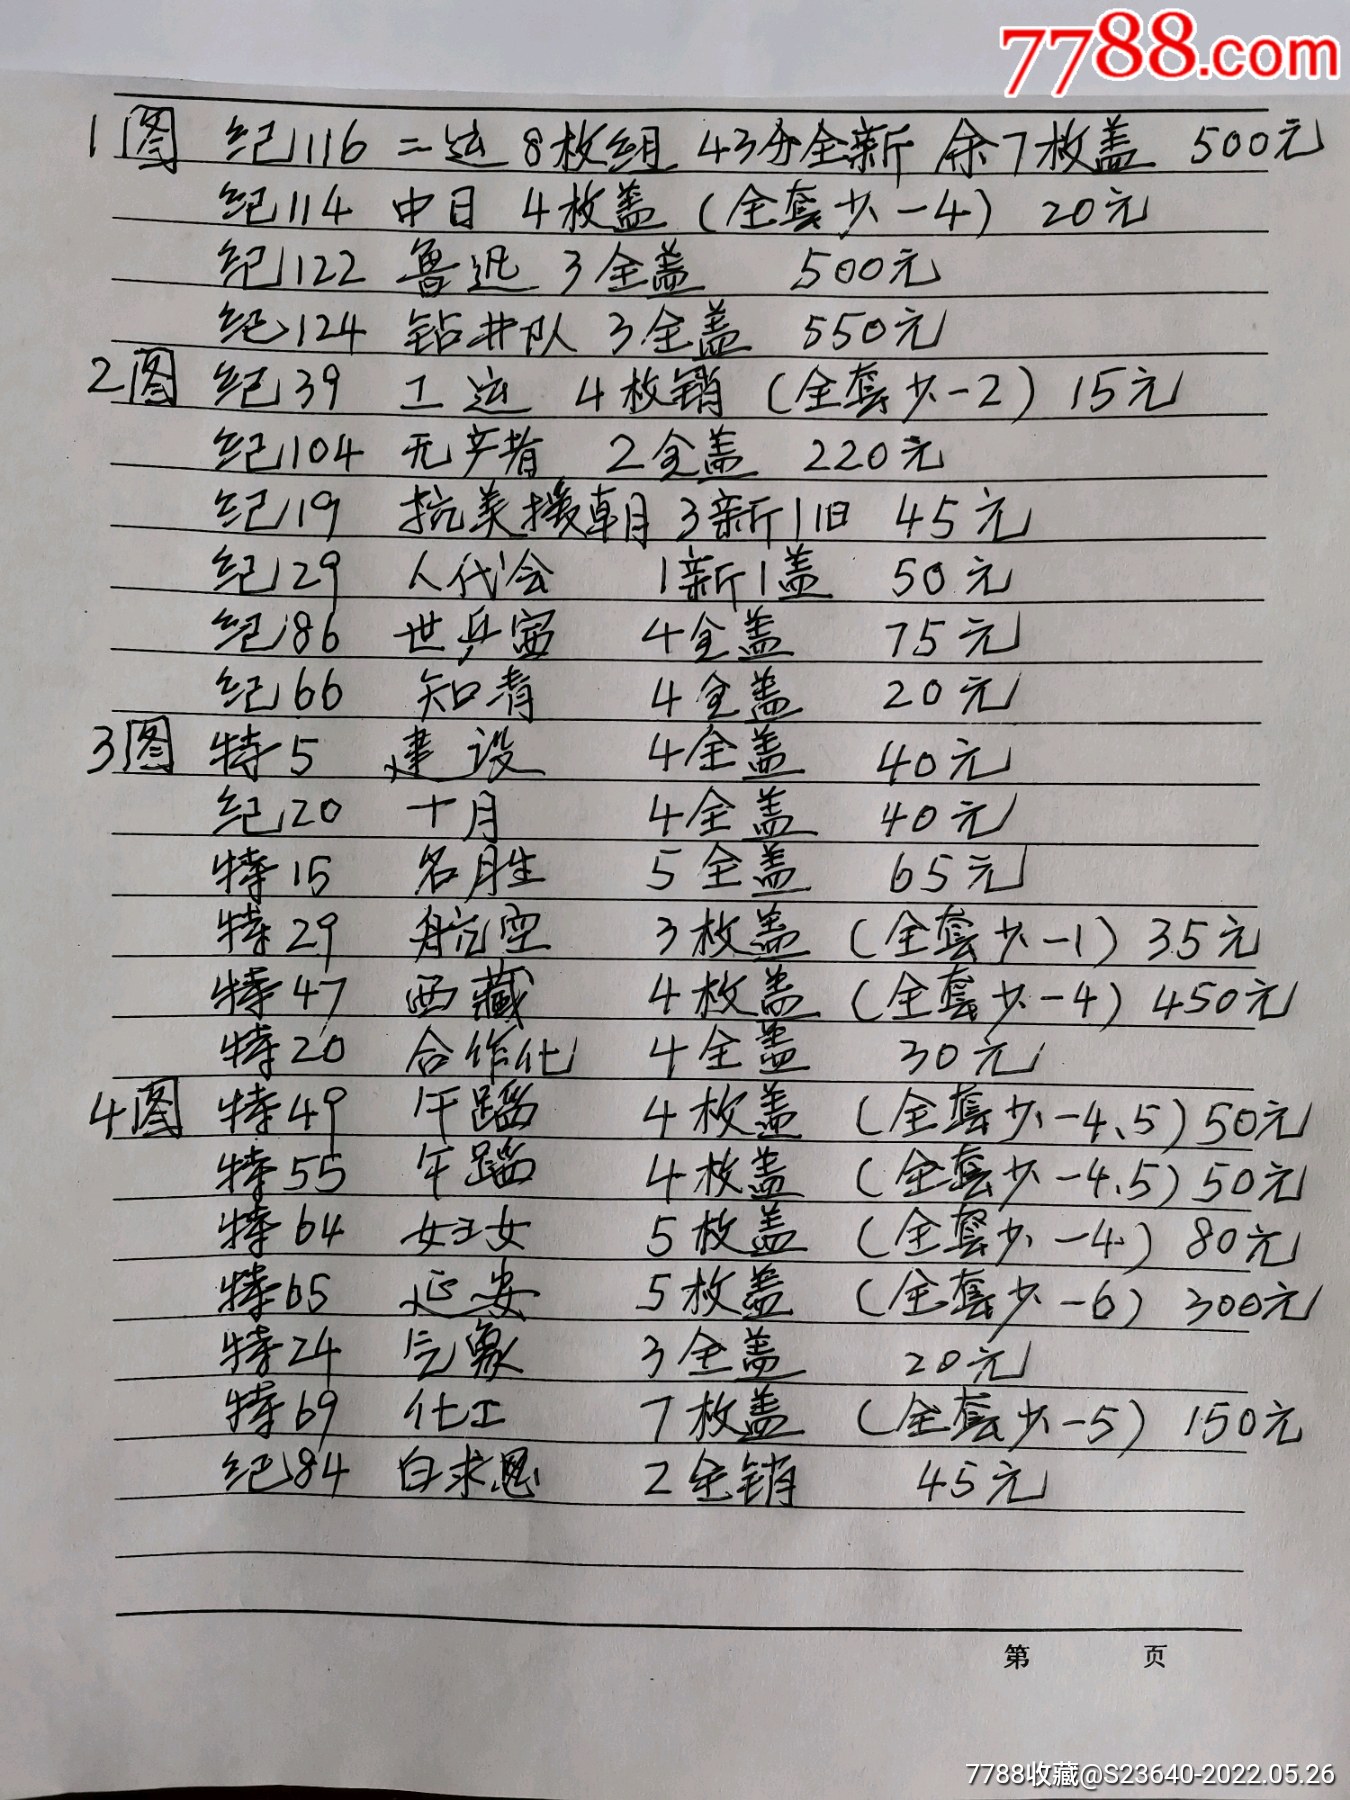 7788.com
1图 纪116 二运 8枚组 43分全新 余7枚盖 500元
纪114 中日 4枚盖（全套少-4） 20元
纪122 鲁迅 3全盖 500元
纪124 钻井队 3全盖 550元
2图 纪39 工运 4枚销（全套少-2） 15元
纪104 无产者 2全盖 220元
纪19 抗美援朝 3新1旧 45元
纪29 人代会 1新1盖 50元
纪86 世乒 4全盖 75元
纪66 知青 4全盖 20元
3图 特5 建设 4全盖 40元
纪20 十月 4全盖 40元
特15 名胜 5全盖 65元
特29 航空 3枚盖（全套少-1） 35元
特47 西藏 4枚盖（全套少-4） 450元
特20 合作化 4全盖 30元
4图 特49 4枚盖（全套少-4、5） 50元
特55 4枚盖（全套少-4.5） 50元
特64 5枚盖（全套少-4） 80元
特65 延安 5枚盖（全套少-6） 300元
特24 气象 3全盖 20元
特69 化工 7枚盖（全套少-5） 150元
纪84 白求恩 2全销 45元
第 页
7788收藏@S23640-2022.05.26